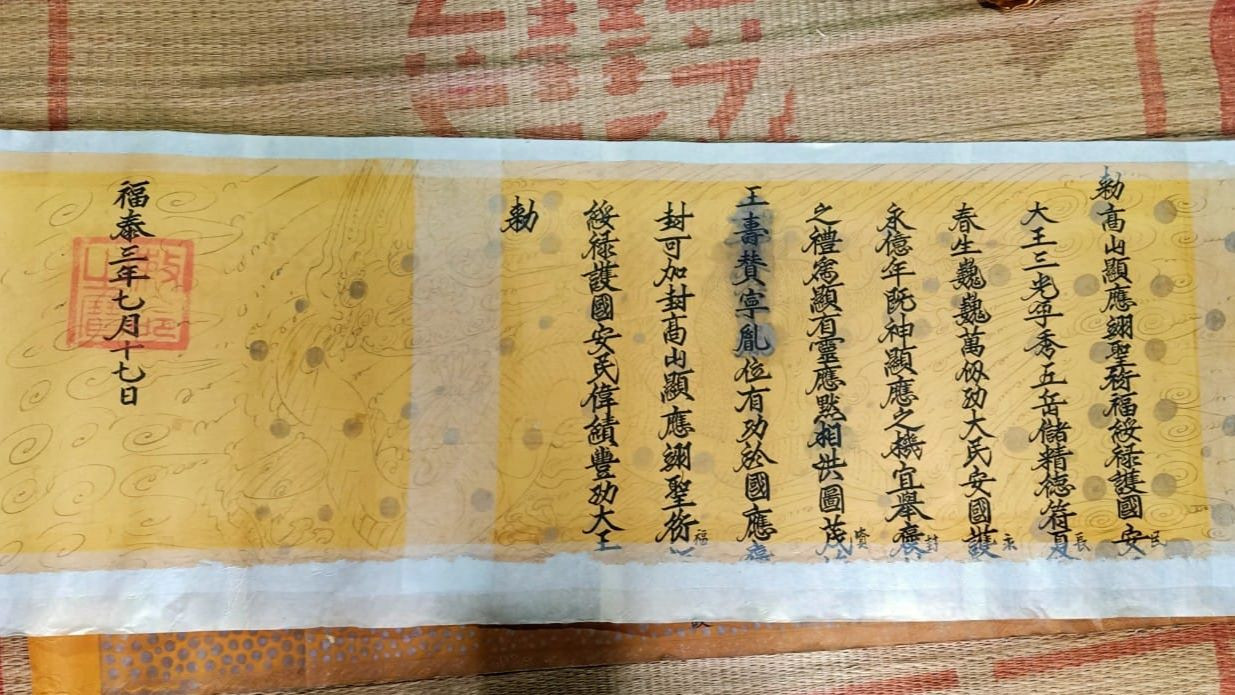 勅高山顯應翊聖衍福綏祿護國安民
大王三光孕秀五岳儲精德符夏長
春生巍巍萬仭功大民安國護永
永億年旣神顯應之機宜舉褒封
之禮爲顯有靈應默相洪圖茂賛
王壽賛寧胤位有功於國應
封可加封高山顯應翊聖衍福
綏祿護國安民偉績豐功大王
勅
福泰三年七月十七日